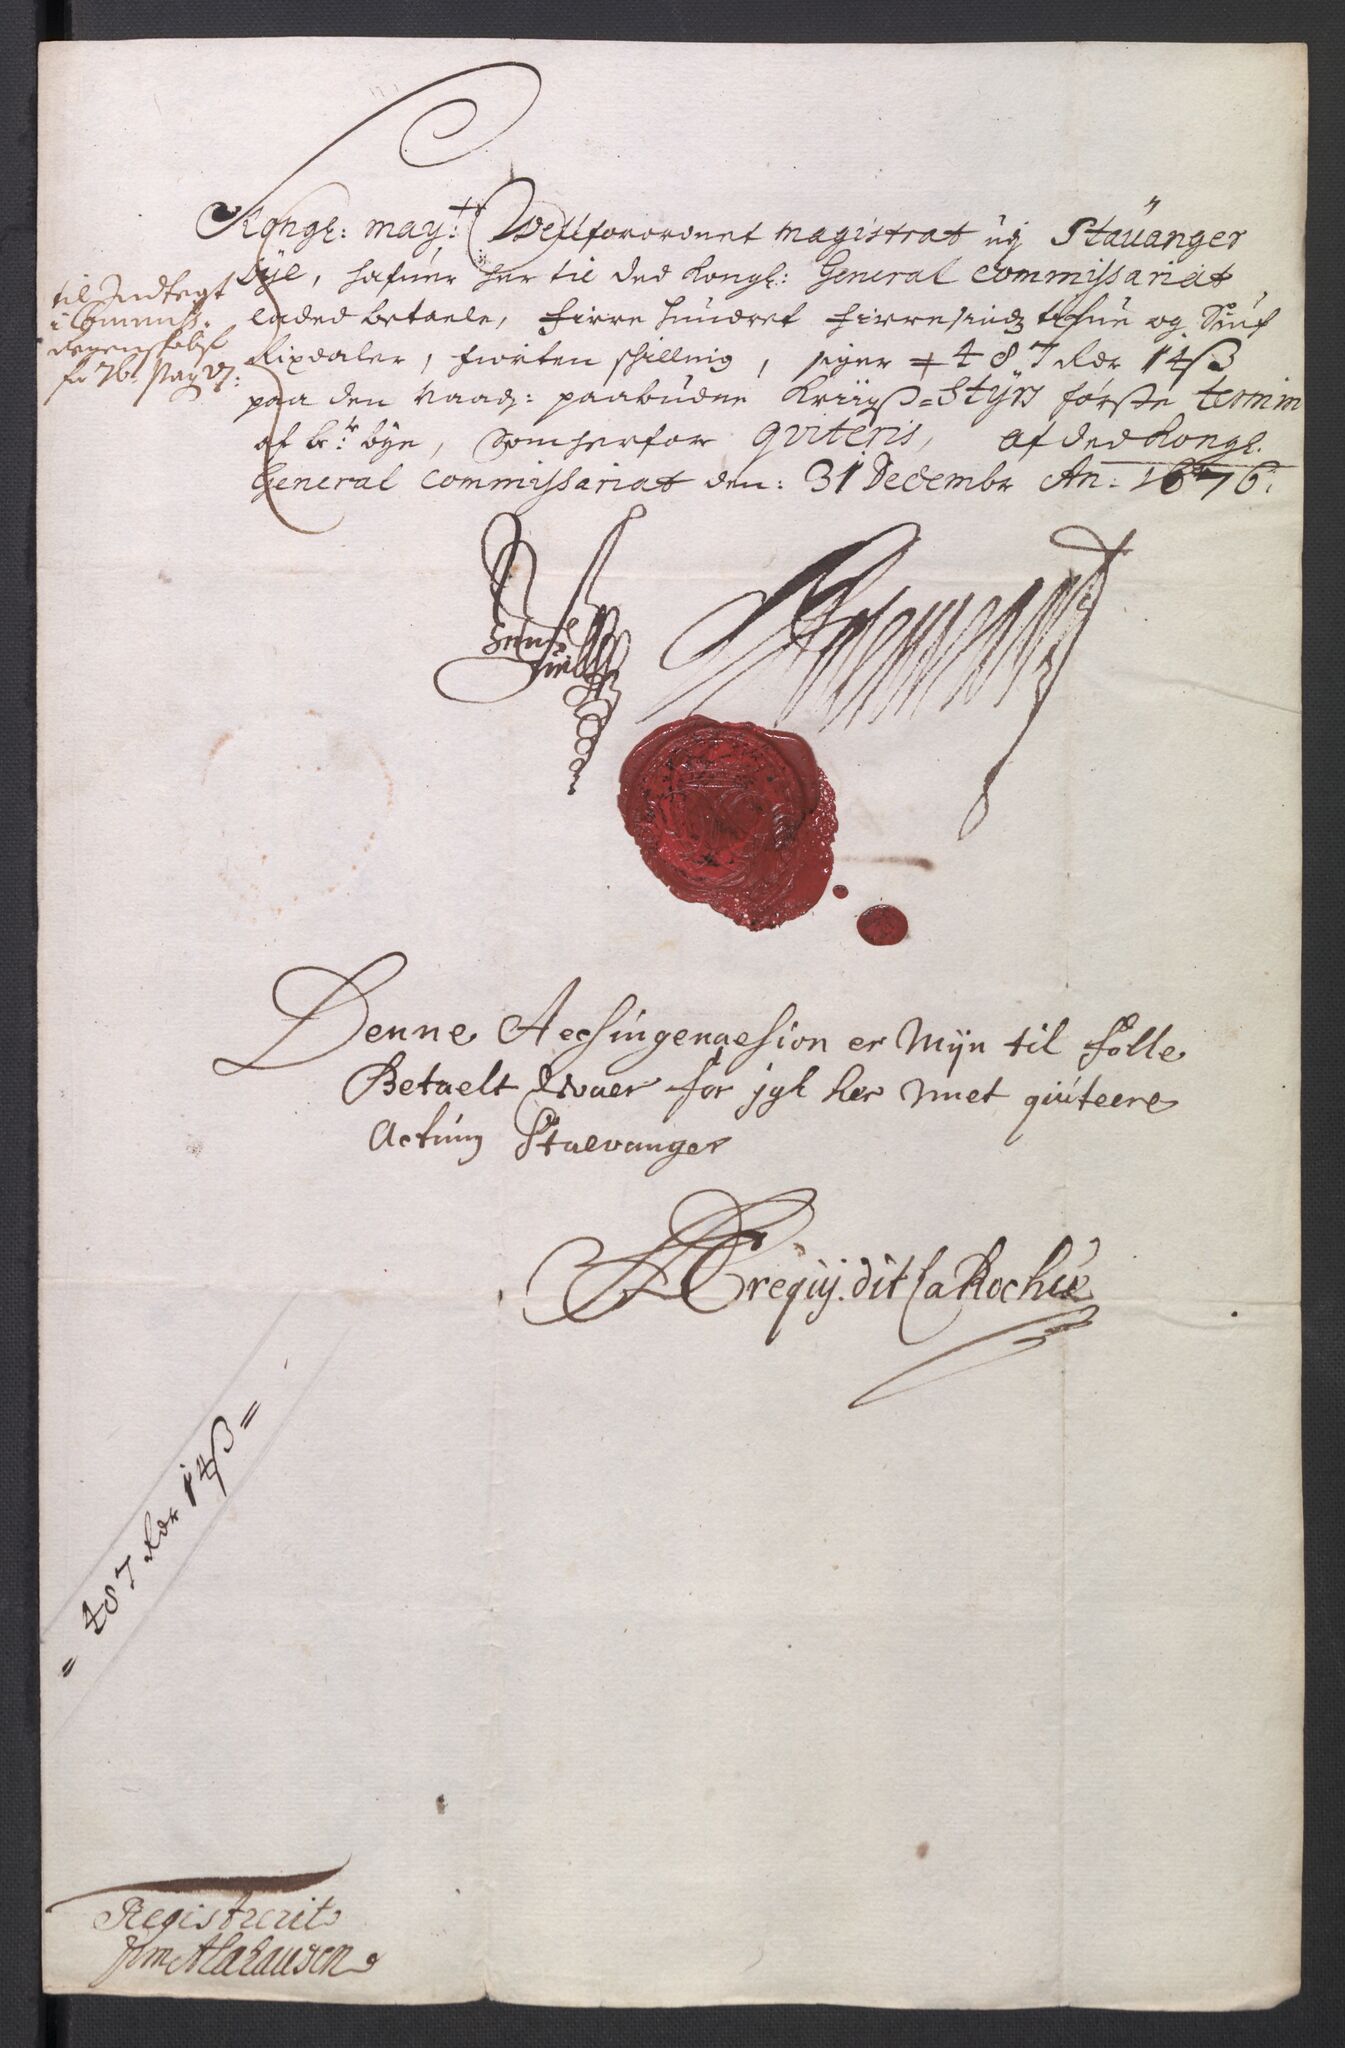 Kongl: may:tt Wellforordnet magistrat udj Stavanger
bÿe, hafuer her til ded Kongl: General Commissariat
laded betaele, fiirre hundret fiirresinds tifue og Siuf
Rixdaler, fiorten schilling, siger # 487 Rdr 14 ß
paa den naadj: paabudne Kriigß=Styrs første termin
af b:te bye, som herfor qviteris, af ded Kongl.
General Commissariat den: 31 Decembr An: 1676.
til Indtegt
i Commiss:
Regenskabet
for 76. Pag
Denne Assingenaesion er Mÿn til folle
Betaelt Hvaer for jgh her met qviteere
Actum Staevanger
Crequÿ. dit la Roche
= 487 Rdr 14 ß =
Registrerit